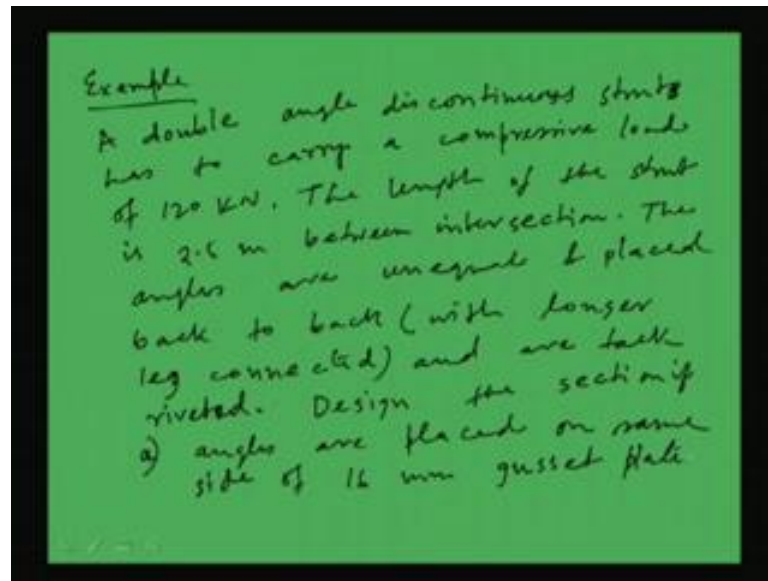 Example
A double angle discontinuous struts
has to carry a compressive load
of 120 KN. The length of the strut
is 2.6 m between intersection. The
angles are unequal & placed
back to back (with longer
leg connected) and are tack
riveted. Design the section if
a) angles are placed on same
side of 16 mm gusset plate